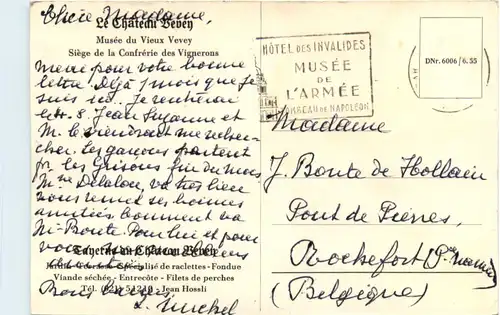 Chère Madame,
Le Château Vevey
Musée du Vieux Vevey
Siège de la Confrérie des Vignerons
Merci pour votre bonne
lettre. Déjà 1 mois que je
suis ici. Je rentrerai
8. Jean Suzanne et
M. viendront me recher-
cher. Les garçons partent
Grisons fin du mois
Mme va très bien
vous remet ses bonnes
amitiés comment va
Mr Bonte pour lui et pour
vous
Taverne du Château Vevey
Spécialité de raclettes - Fondue
Viande séchée - Entrecôte - Filets de perches
Tél. (021) 51210 - Jean Hossli
Bons baisers
HÔTEL DES INVALIDES
MUSÉE
DE
L'ARMÉE
TOMBEAU DE NAPOLÉON
DNr. 6006/6.55
Madame
J. Bonte de Hollain
Pont de Pierres,
Rochefort
(Belgique)